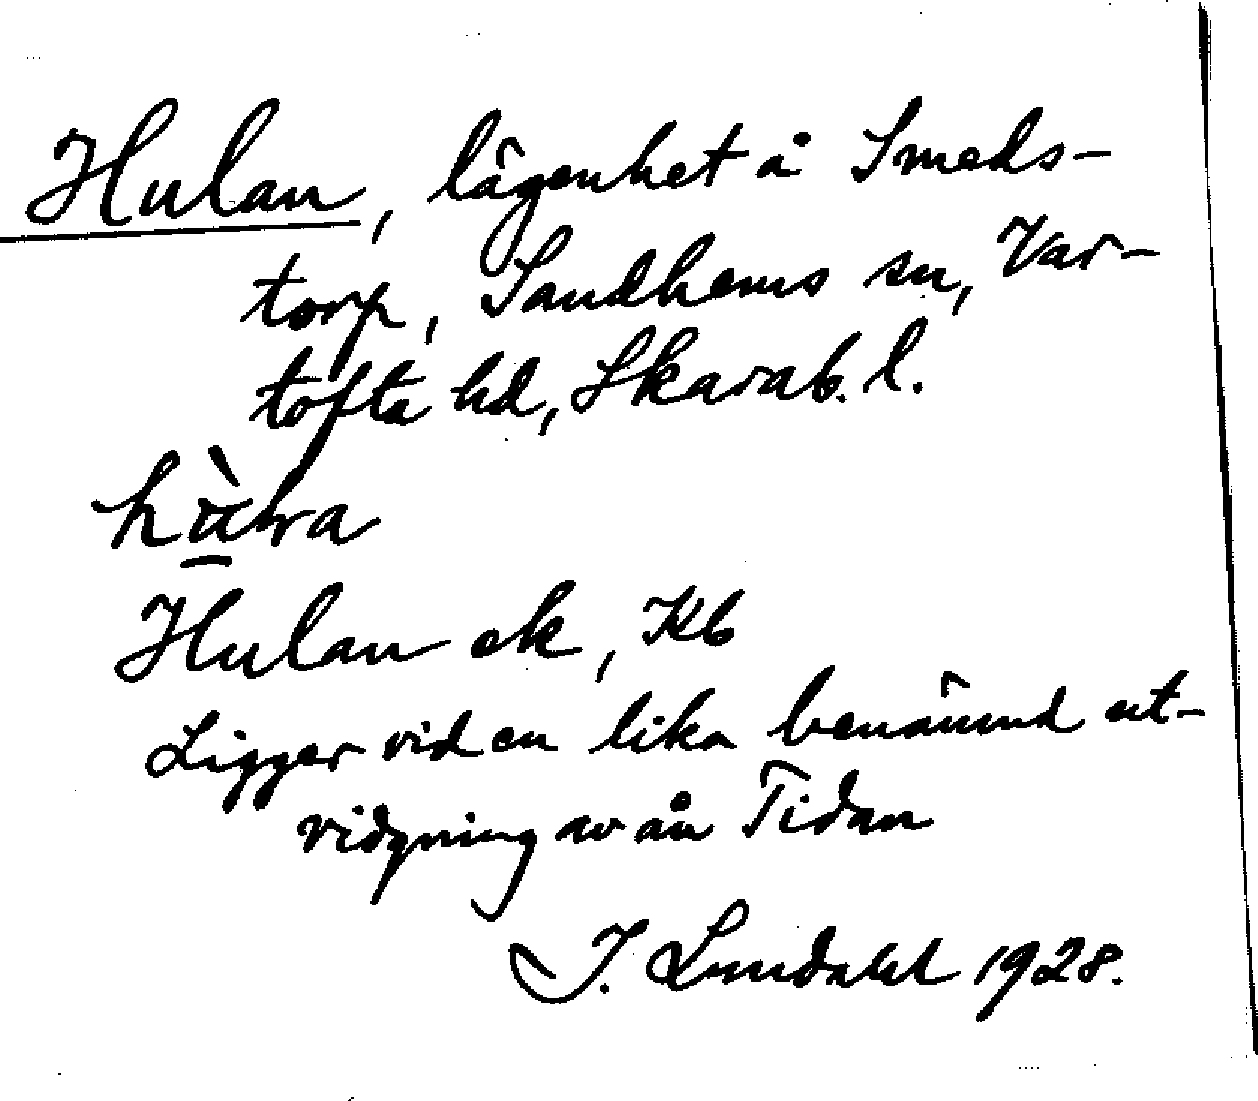 Hulan, lägenhet å Smeds-
torp, Sandhems sn, Var-
tofta hd, Skarab. l.
Hulan ek, Kb
Ligger vid en lika benämnd ut-
vidgning av ån Tidan
J. Lundahl 1928.